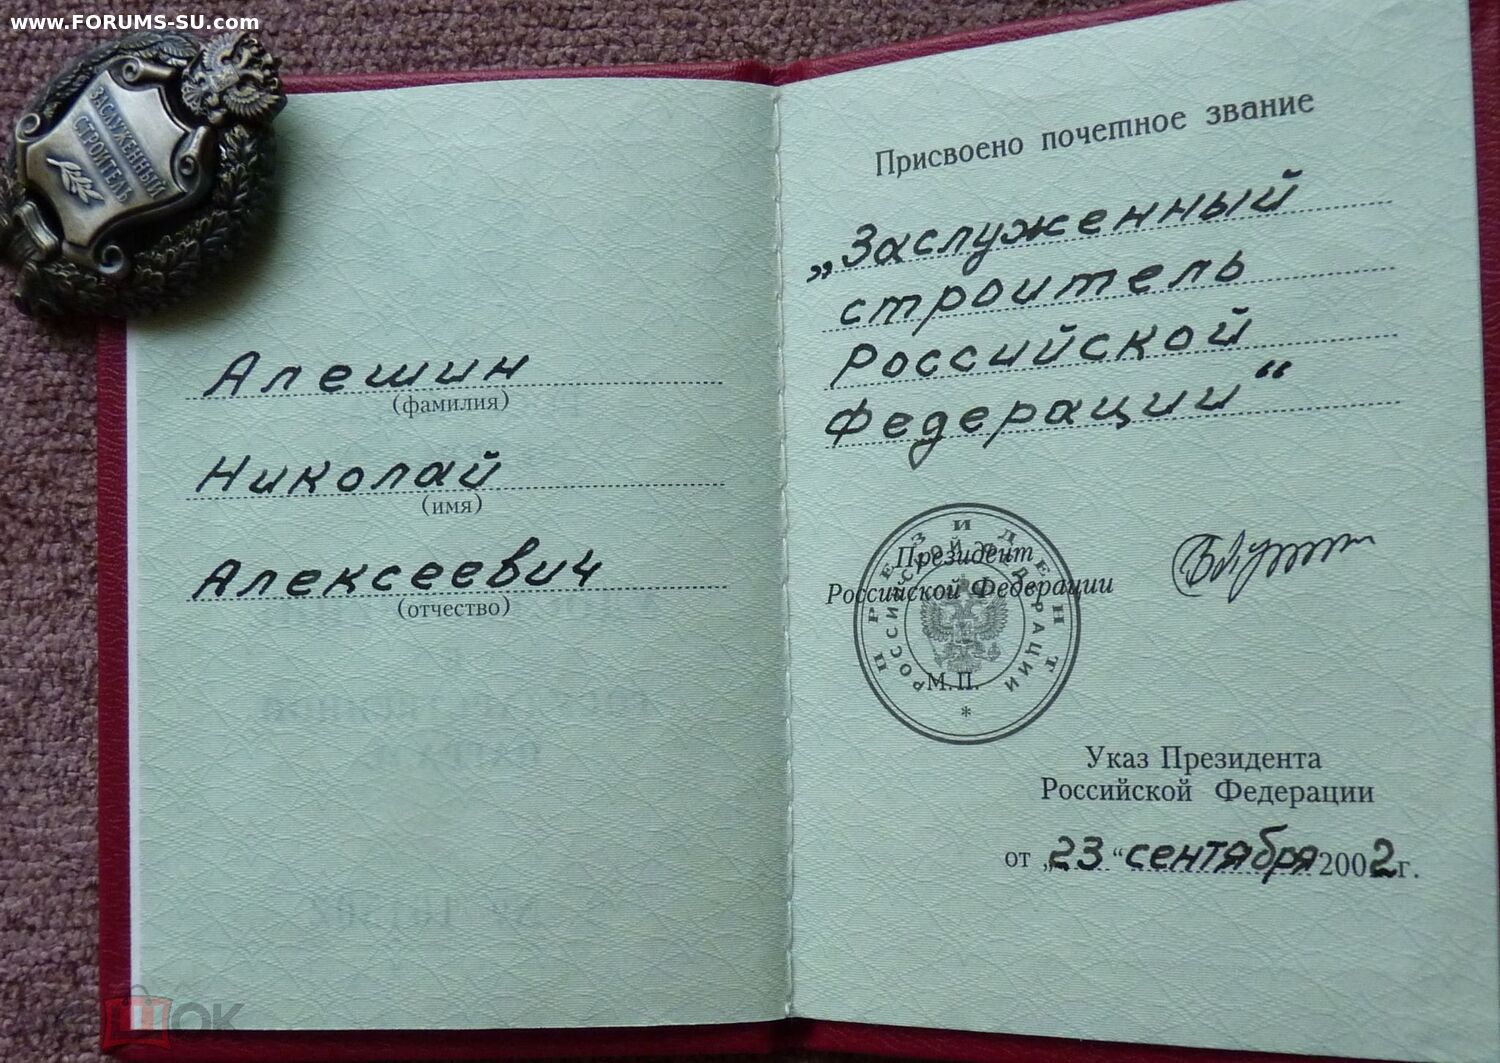 www.FORUMS-SU.com
ЗАСЛУЖЕННЫЙ
СТРОИТЕЛЬ
Алешин
(фамилия)
Николай
(имя)
Алексеевич
(отчество)
Присвоено почетное звание
„Заслуженный
строитель
Российской
Федерации“
Президент
Российской Федерации
ПРЕЗИДЕНТ
РОССИЙСКОЙ ФЕДЕРАЦИИ
М.П.
*
Указ Президента
Российской Федерации
от „23“ сентября 2002 г.